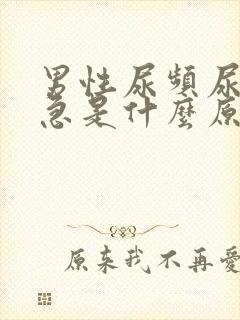 男性尿頻尿
急是什麼原
原来我不再愛